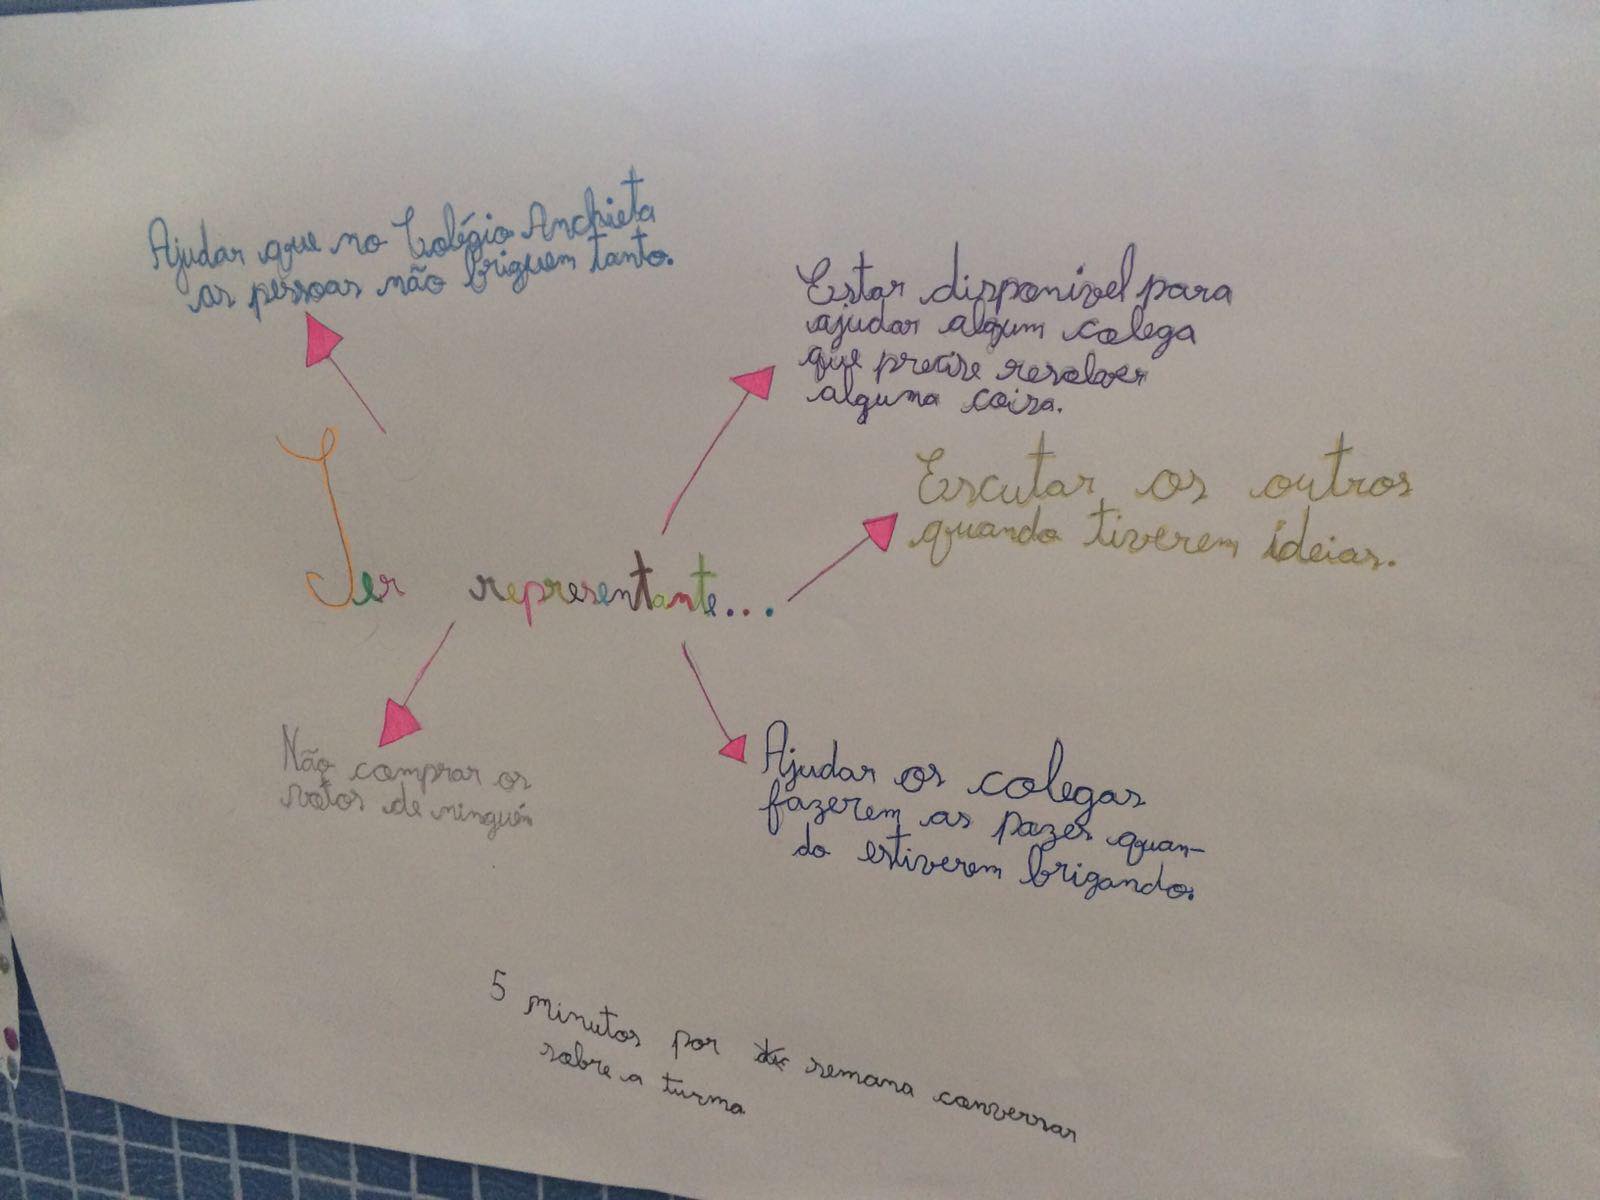 Ajudar que no Colégio Anchieta
as pessoas não briguem tanto.
Estar disponível para
ajudar algum colega
que precise resolver
alguma coisa.
Escutar os outros
quando tiverem ideias.
Ser representante...
Não comprar os
votos de ninguém
Ajudar os colegas
fazerem as pazes quan-
do estiverem brigando.
5 minutos por semana conversar
sobre a turma